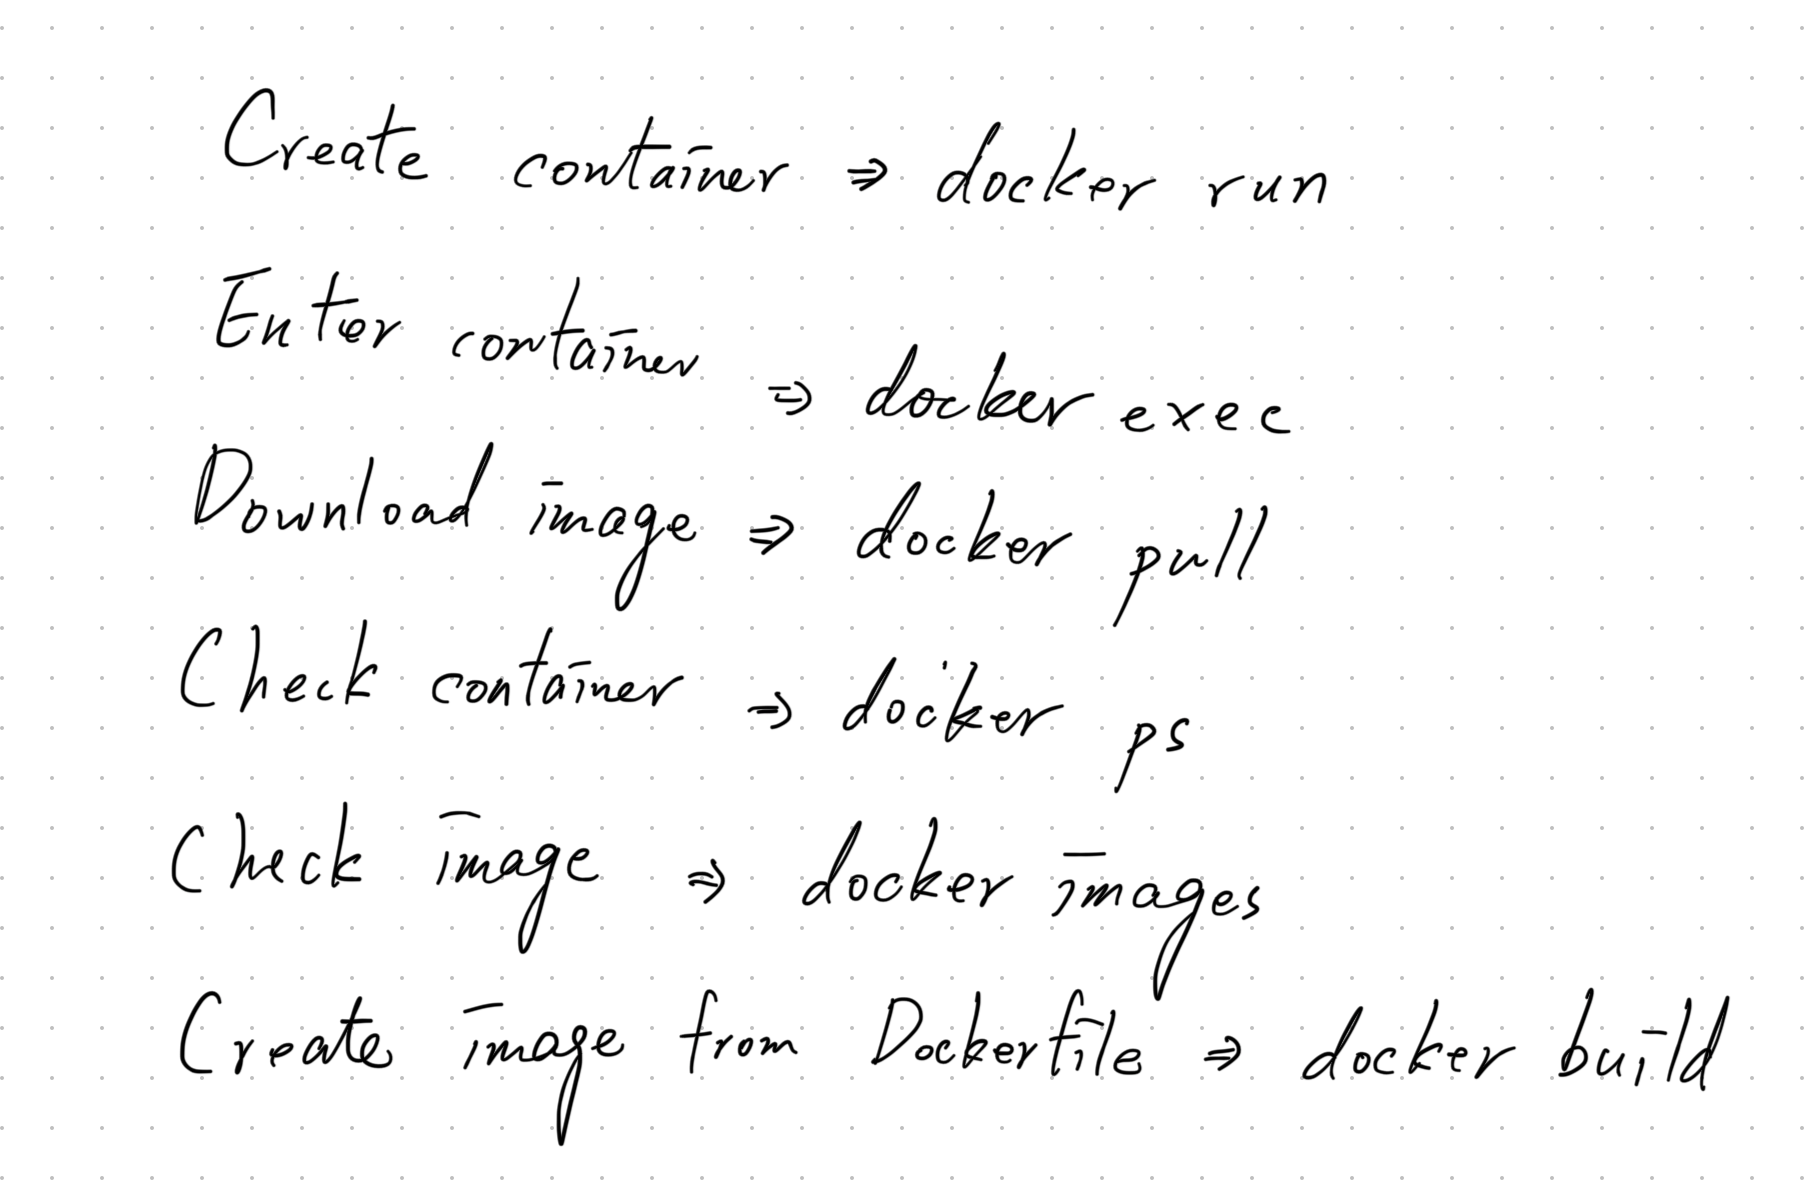 Create container ⇒ docker run
Enter container ⇒ docker exec
Download image ⇒ docker pull
Check container ⇒ docker ps
Check image ⇒ docker images
Create image from Dockerfile ⇒ docker build